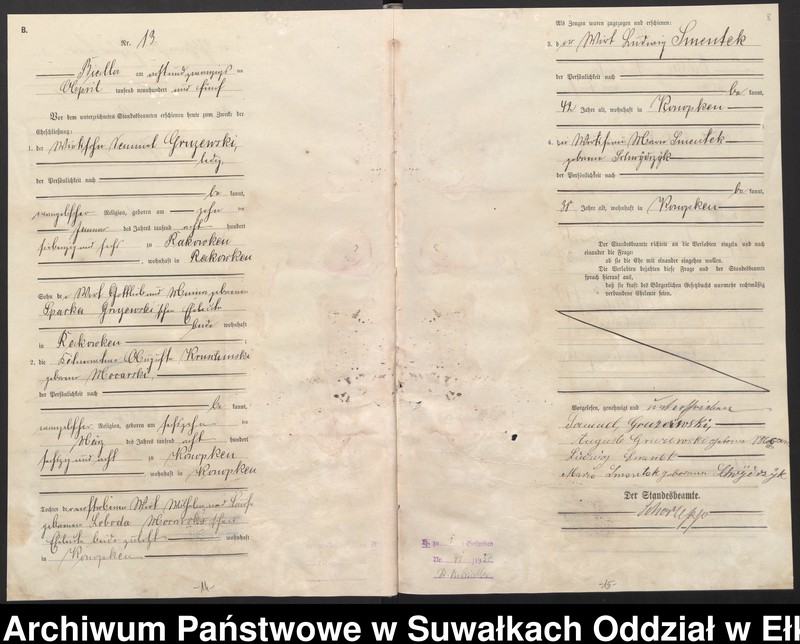 B.
Nr. 13
Bialla am achtundzwanzigs ten
April tausend neunhundert und fünf
Vor dem unterzeichneten Standesbeamten erschienen heute zum Zwecke der
Eheschließung:
1. der Wirtssohn Samuel Gruzewski,
ledig,
der Persönlichkeit nach
be kannt,
evangelischer Religion, geboren am zehn ten
Januar des Jahres tausend acht hundert
siebenzig und sechs zu Rakowken
, wohnhaft in Rakowken
Sohn der Wirt Gottlieb und
Sparka Gruzewski'schen Eheleute
beide wohnhaft
in Rakowken
2. die Auguste
geborene Mocarski,
der Persönlichkeit nach
be kannt,
evangelischer Religion, geboren am sechszehn ten
März des Jahres tausend acht hundert
sechzig und acht zu Konopken
, wohnhaft in Konopken
Tochter der verstorbenen Wirt Wilhelm und Louise
geborenen Loboda Mocarski'schen
Eheleute beide zuletzt wohnhaft
in Konopken
-14-
Als Zeugen waren zugezogen und erschienen:
3. der Wirt Ludwig Smentek
der Persönlichkeit nach
be kannt,
42 Jahre alt, wohnhaft in Konopken
4. die Wirtsfrau Marie Smentek
geborene
der Persönlichkeit nach
be kannt,
38 Jahre alt, wohnhaft in Konopken
Der Standesbeamte richtete an die Verlobten einzeln und nach
einander die Frage:
ob sie die Ehe mit einander eingehen wollen.
Die Verlobten bejahten diese Frage und der Standesbeamte
sprach hierauf aus,
daß sie kraft des Bürgerlichen Gesetzbuchs nunmehr rechtmäßig
verbundene Eheleute seien.
Vorgelesen, genehmigt und unterschrieben
Samuel Gruzewski,
Auguste Gruzewski geborene
Ludwig Smentek
Marie Smentek geborene
Der Standesbeamte.
-15-
Archiwum Państwowe w Suwałkach Oddział w Ełk